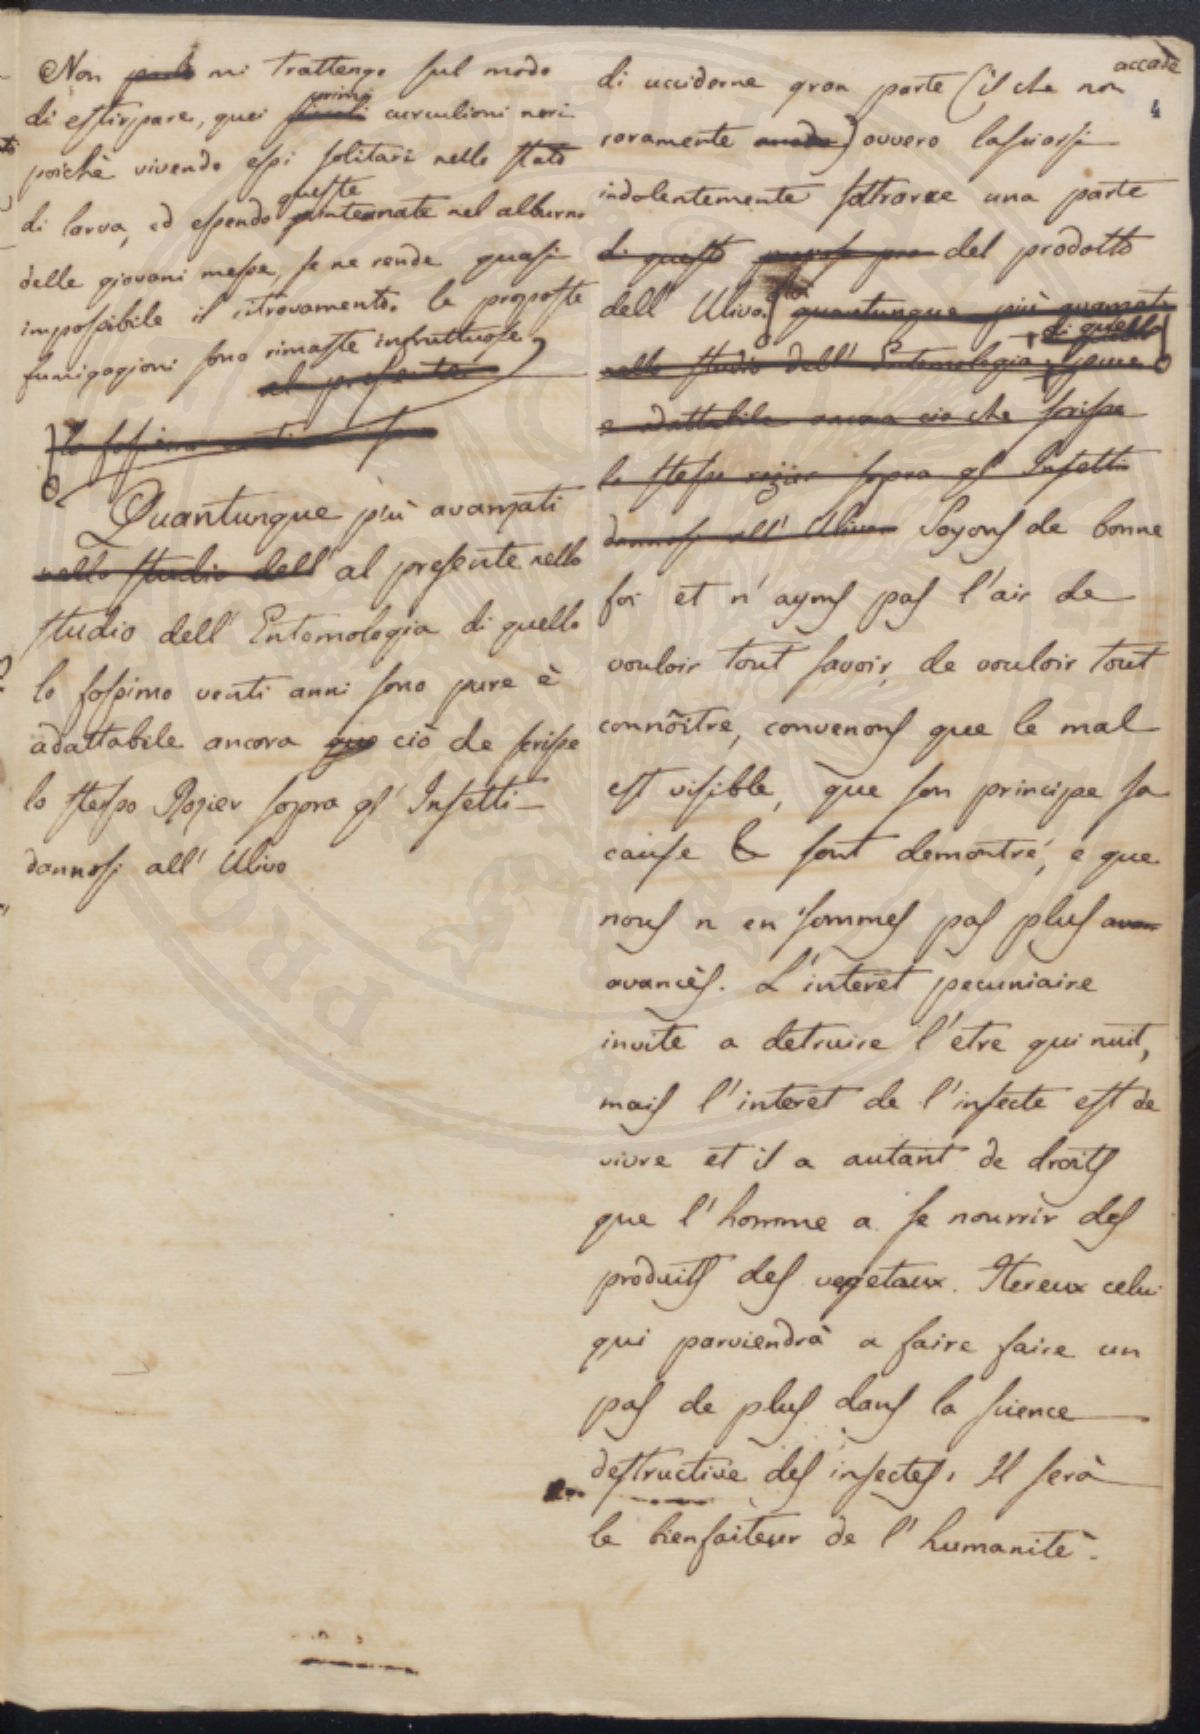 Non mi trattengo sul modo
di estirpare, quei primi curculioni neri
poichè vivendo essi solitari nello stato
di larva, ed essendo queste internate nel alburno
delle giovani messe, se ne rende quasi
impossibile il ritrovamento. le proposte
fumigagioni sono rimaste infruttuose
al presente
Quantunque più avanzati
nello studio dell' al presente nello
studio dell' Entomologia di quello
lo fossimo venti anni sono pure è
adattabile ancora ciò che scrisse
lo stesso Rozier sopra gl' Insetti
dannosi all' Ulivo
4
accade
di ucciderne gran parte (il che non
raramente ) ovvero lasciarsi
indolentemente sottrarre una parte
di questo del prodotto
dell' Ulivo. quantunque più avanzati
di quello
nello studio dell' Entomologia pure
e adattabile ancora cio che scrisse
lo stesso rozier sopra gl' Insetti
dannosi all' Ulivo Soyons de bonne
foi et n' ayons pas l'air de
vouloir tout savoir, de vouloir tout
connôitre, convenons que le mal
est visible, que son principe sa
cause & sont demontré, e que
nous n en sommes pas plus avan
avancès. L'interet pecuniaire
invite a detruire l'etre qui nuit,
mais l'interet de l'insecte est de
vivre et il a autant de droits
que l'homme a se nourrir des
produits des vegetaux. Hereux celui
qui parviendrà a faire faire un
pas de plus dans la science
destructive des insectes. Il serà
le bienfaiteur de l' humanitè.